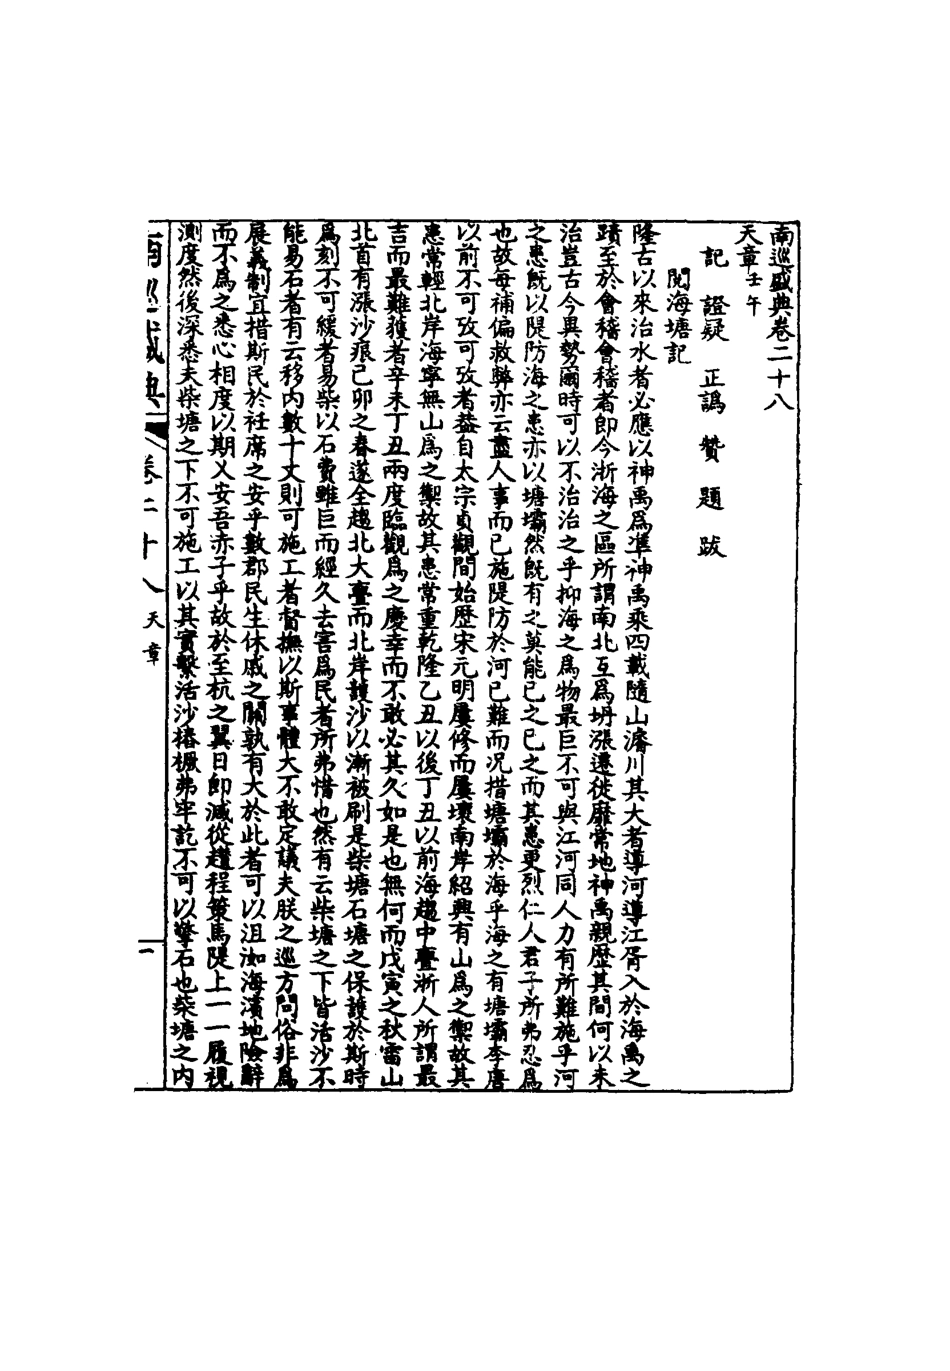 南巡盛典卷二十八
天章壬午
記 證疑 正譌 贊 題 跋
閱海塘記
隆古以來治水者必應以神禹爲準神禹乘四載隨山濬川其大者導河導江胥入於海禹之
蹟至於會稽會稽者即今浙海之區所謂南北互爲坍漲遷徙靡常地神禹親歷其間何以未
治豈古今異勢爾時可以不治治之乎抑海之爲物最巨不可與江河同人力有所難施乎河
之患旣以隄防海之患亦以塘壩然旣有之莫能已之已之而其患更烈仁人君子所弗忍爲
也故每補偏救弊亦云盡人事而已施隄防於河已難而况措塘壩於海乎海之有塘壩李唐
以前不可攷可攷者蓋自太宗貞觀間始歷宋元明屢修而屢壞南岸紹興有山爲之禦故其
患常輕北岸海寧無山爲之禦故其患常重乾隆乙丑以後丁丑以前海趨中亹浙人所謂最
吉而最難獲者辛未丁丑兩度臨觀爲之慶幸而不敢必其久如是也無何而戊寅之秋雷山
北首有漲沙痕己卯之春遂全趨北大亹而北岸護沙以漸被刷是柴塘石塘之保護於斯時
爲刻不可緩者易柴以石費雖巨而經久去害爲民者所弗惜也然有云柴塘之下皆活沙不
能易石者有云移内數十丈則可施工者督撫以斯事體大不敢定議夫朕之巡方問俗非爲
展義制宜措斯民於衽席之安乎數郡民生休戚之關孰有大於此者可以沮洳海濱地險辭
而不爲之悉心相度以期乂安吾赤子乎故於至杭之翼日即減從趲程策馬隄上一一履視
測度然後深悉夫柴塘之下不可施工以其實繫活沙樁橛弗牢訖不可以擎石也柴塘之内
南巡盛典 卷二十八 天章 一